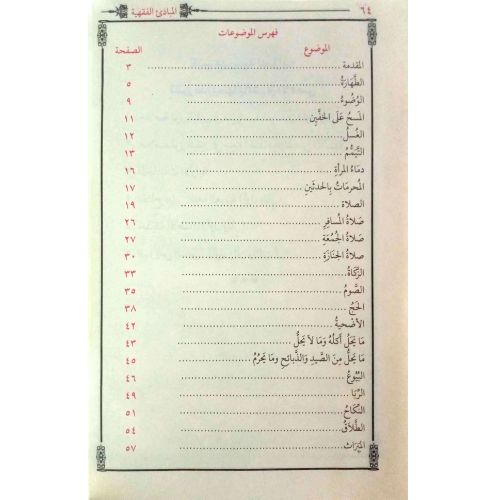 ٦٤ المبادئ الفقهية
فهرس الموضوعات
الموضوع الصفحة
المقدمة ................ ٣
الطَّهَارَةُ ................ ٥
الوُضُوءُ ................ ٩
المَسْحُ عَلَى الخُفَّيْنِ ................ ١١
الغُسْلُ ................ ١٢
التَّيَمُّمُ ................ ١٣
دِمَاءُ المرأةِ ................ ١٦
المُحرماتُ بِالحدثَينِ ................ ١٧
الصلاة ................ ١٩
صَلاةُ المُسافِرِ ................ ٢٦
صَلاةُ الجُمُعَةِ ................ ٢٧
صلاةُ الجَنَازَةِ ................ ٣٠
الزَّكَاةُ ................ ٣٣
الصَّومُ ................ ٣٥
الحَجُّ ................ ٣٨
الأضحيةُ ................ ٤٢
مَا يَحِلُّ أَكْلُهُ وَمَا لاَ يَحِلُّ ................ ٤٣
مَا يَحِلُّ مِنَ الصَّيدِ وَالذَّبائحِ وما يَحرُمُ ................ ٤٥
البُيُوعُ ................ ٤٦
الرِّبَا ................ ٤٩
النِّكَاحُ ................ ٥١
الطَّلاَقُ ................ ٥٤
المِيْرَاثُ ................ ٥٧